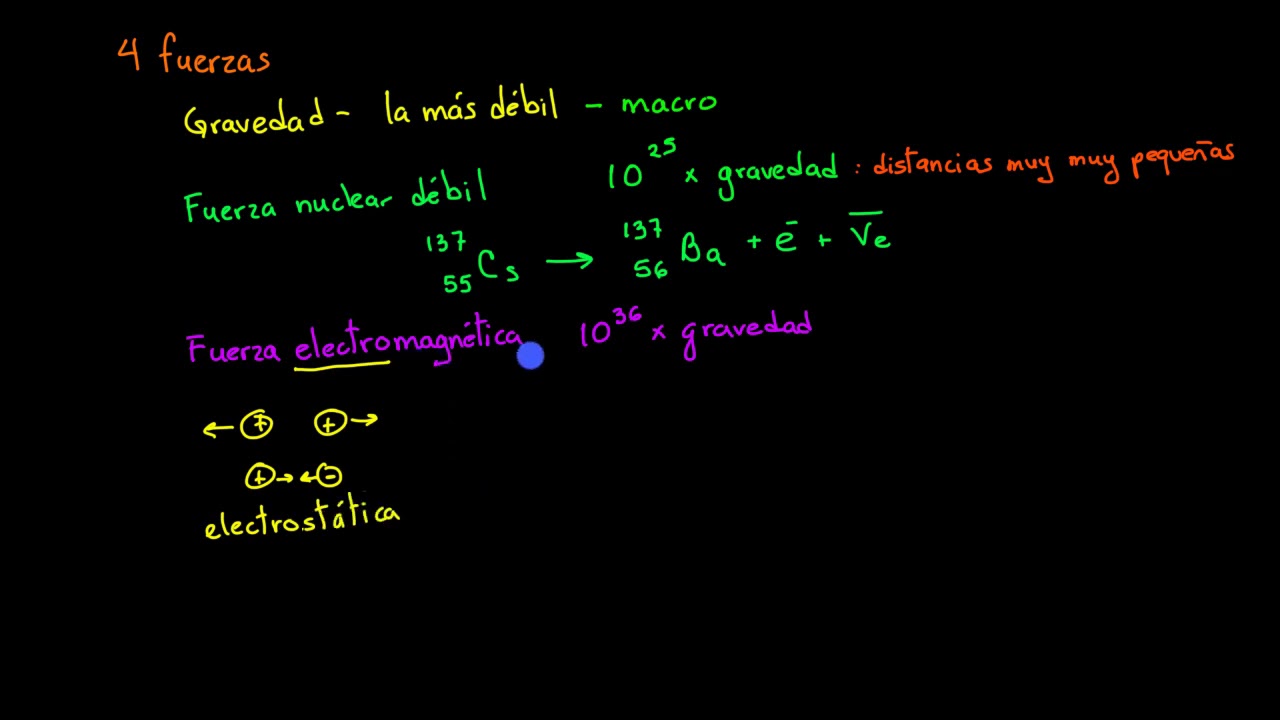 4 fuerzas
Gravedad - la más débil - macro
Fuerza nuclear débil 10²⁵ x gravedad : distancias muy muy pequeñas
¹³⁷₅₅Cs → ¹³⁷₅₆Ba + e⁻ + ν̅e
Fuerza electromagnética 10³⁶ x gravedad
← + + →
+ → ← -
electrostática